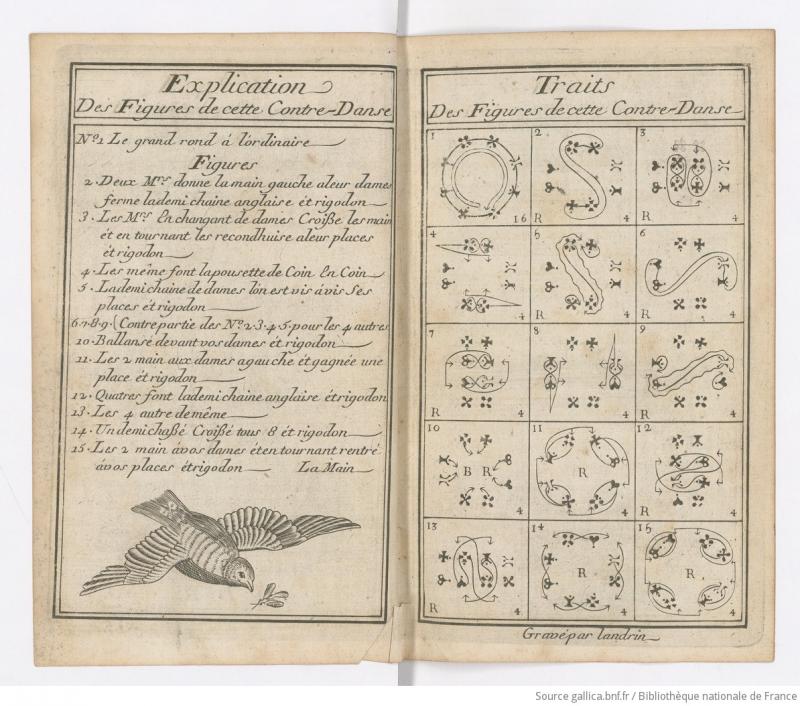 Explication
Des Figures de cette Contre-Danse
Nº.1 Le grand rond á l'ordinaire
Figures
2. Deux Mrs. donne la main gauche aleur dames
ferme lademi chaine anglaise ét rigodon
3. Les Mrs. En changant de dames Croiße les main
ét en tournant les recondhuise aleur places
ét rigodon
4. Les même font lapousette de Coin En Coin
5. Lademi chaine de dames l'on est vis ávis Ses
places ét rigodon
6.7.8.9. (Contre partie des Nº. 2.3.4.5. pour les 4 autres
10. Ballansé devant vos dames ét rigodon
11. Les 2 main aux dames agauche ét gagnée une
place ét rigodon
12. Quatres font lademi chaine anglaise ét rigodon
13. Les 4 autre de même
14. Un demi chaßé Croißé tous 8 ét rigodon
15. Les 2 main ávos dames ét en tournant rentré
ávos places ét rigodon La Main
Traits
Des Figures de cette Contre-Danse
1 2 3
16 R 4 R 4
4 5 6
4 R 4 4
7 8 9
R 4 4 R 4
10 11 12
B R R
4 4 R 4
13 14 15
R R
R 4 4 4
Gravé par landrin
Source gallica.bnf.fr / Bibliothèque nationale de France